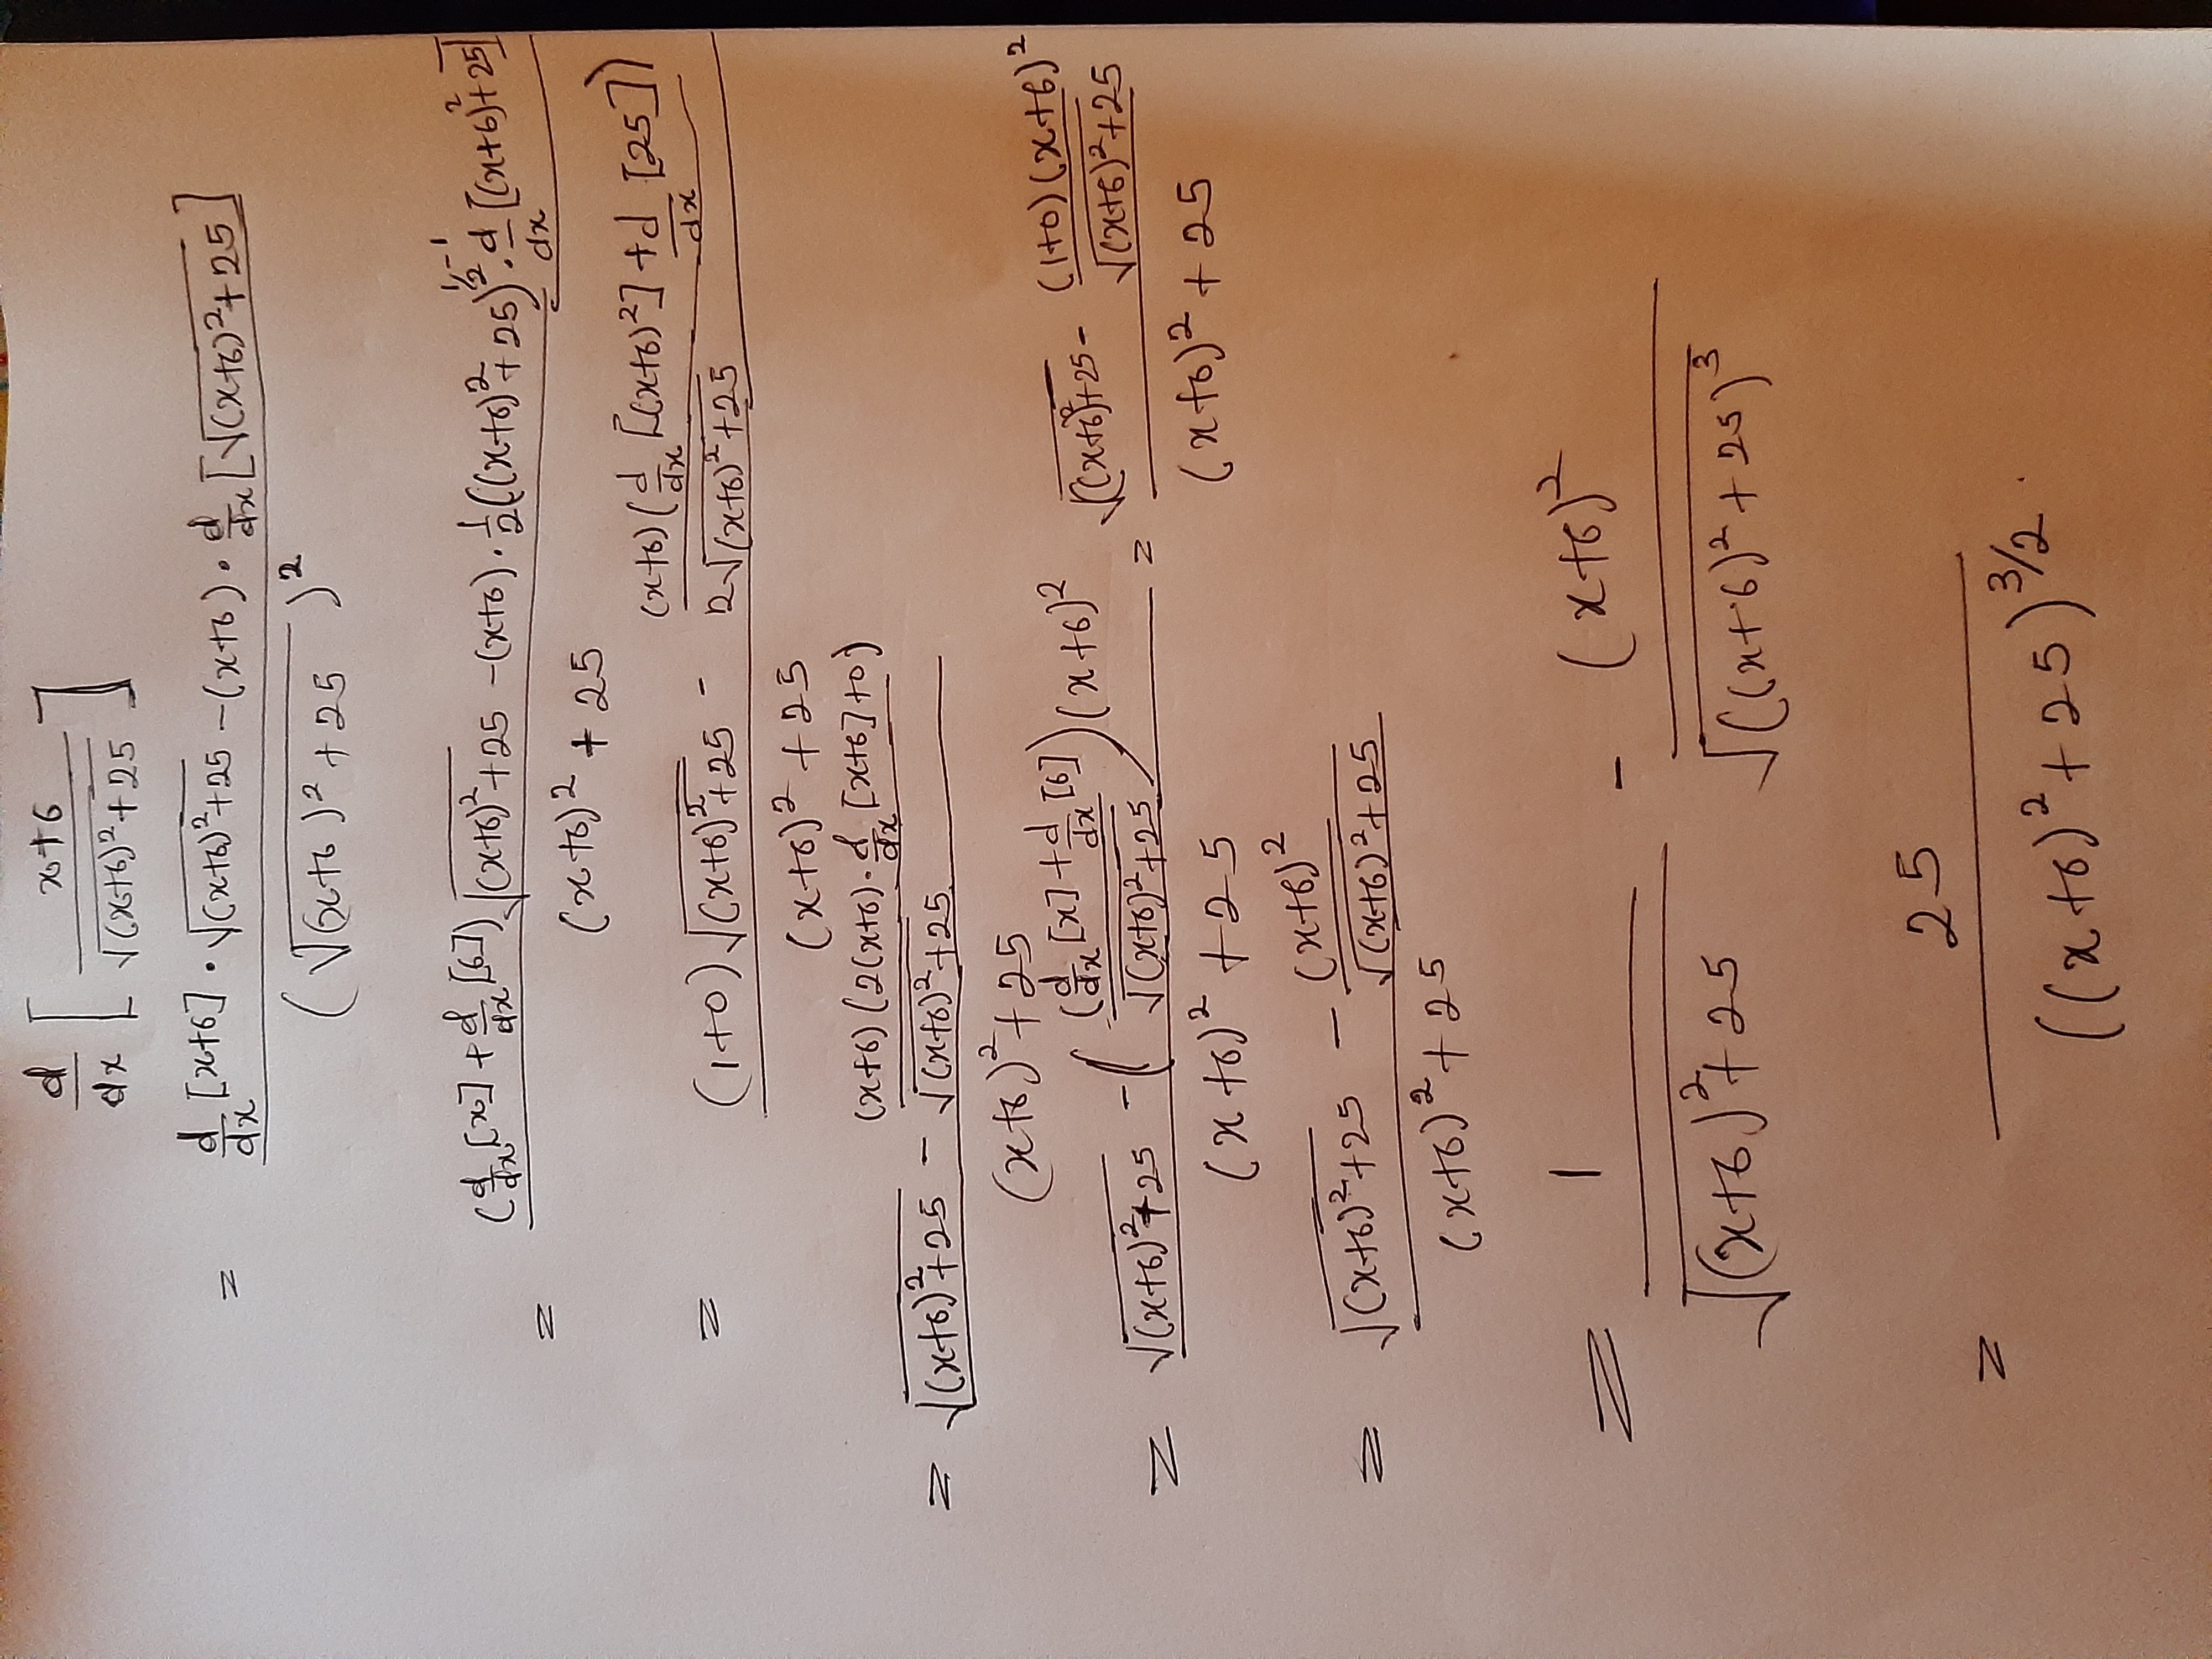 d/dx [ (x+6) / √((x+6)²+25) ]
= ( d/dx [x+6] · √((x+6)²+25) − (x+6) · d/dx [√((x+6)²+25)] ) / (√((x+6)²+25))²
= ( (d/dx [x] + d/dx [6]) √((x+6)²+25) − (x+6) · 1/2 ((x+6)²+25)^(1/2−1) · d/dx [(x+6)²+25] ) / ( (x+6)²+25 )
= ( (1+0) √((x+6)²+25) − (x+6)(d/dx [(x+6)²] + d/dx [25]) / (2√((x+6)²+25)) ) / ( (x+6)²+25 )
= ( √((x+6)²+25) − (x+6)(2(x+6) · d/dx [x+6] +0) / √((x+6)²+25) ) / ( (x+6)²+25 )
= ( √((x+6)²+25) − ( (d/dx [x] + d/dx [6]) / √((x+6)²+25) ) (x+6)² ) / ( (x+6)²+25 ) = ( √((x+6)²+25) − (1+0)(x+6)² / √((x+6)²+25) ) / ( (x+6)²+25 )
= ( √((x+6)²+25) − (x+6)² / √((x+6)²+25) ) / ( (x+6)²+25 )
= 1 / √((x+6)²+25) − (x+6)² / √(((x+6)²+25)³)
= 25 / ((x+6)²+25)^(3/2) .